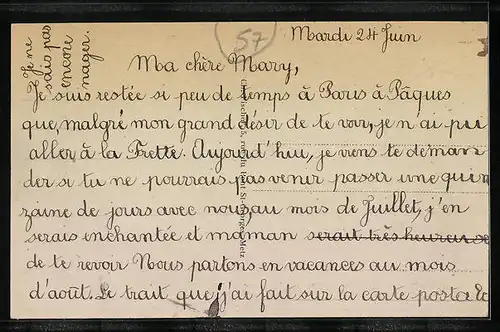 57
Mardi 24 Juin
Je ne
sais pas
encore
nager.
Ma chère Mary,
Je suis restée si peu de temps à Paris à Pâques
que, malgré mon grand désir de te voir, je n'ai pu
aller à la Frette. Aujourd'hui, je viens te deman
der si tu ne pourrais pas venir passer une quin
zaine de jours avec nous au mois de Juillet, j'en
serais enchantée et maman serait très heureuse
de te revoir Nous partons en vacances au mois
d'août. Le trait que j'ai fait sur la carte postale